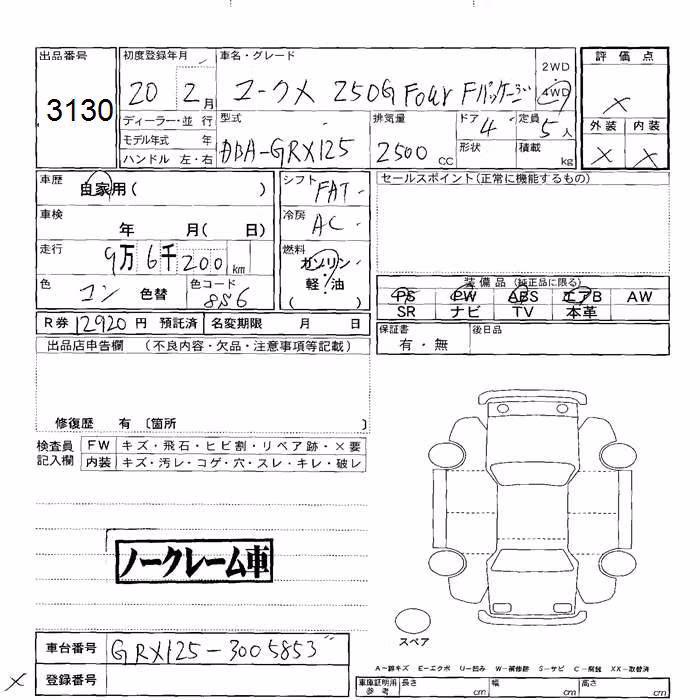 出品番号 初度登録年月 車名・グレード 2WD 評価点
3130 20 2月 マークX 250G Four Fパッケージ 4WD ×
ディーラー・並行 型式 排気量 ドア 4 定員 5人 外装 内装
モデル年式 年 DBA-GRX125 2500cc 形状 積載 kg × ×
ハンドル 左・右
車歴 自家用( ) シフト FAT セールスポイント(正常に機能するもの)
車検 年 月( 日) 冷房 AC
走行 9万6千200km 燃料 ガソリン・軽・油 ( )
色 コン 色替 色コード 8S6
装備品(純正品に限る)
PS PW ABS エアB AW
SR ナビ TV 本革
R券 12920円 預託済 名変期限 月 日 保証書 有・無 後日品
出品店申告欄 (不良内容・欠品・注意事項等記載)
修復歴 有〔箇所 〕
検査員記入欄 FW キズ・飛石・ヒビ割・リペア跡・×要
内装 キズ・汚レ・コゲ・穴・スレ・キレ・破レ
ノークレーム車
スペア
車台番号 GRX125-3005853
× 登録番号
A-線キズ E-エクボ U-凹み W-補修跡 S-サビ C-腐蝕 XX-取替済
車庫証明用参考 長さ cm 幅 cm 高さ cm